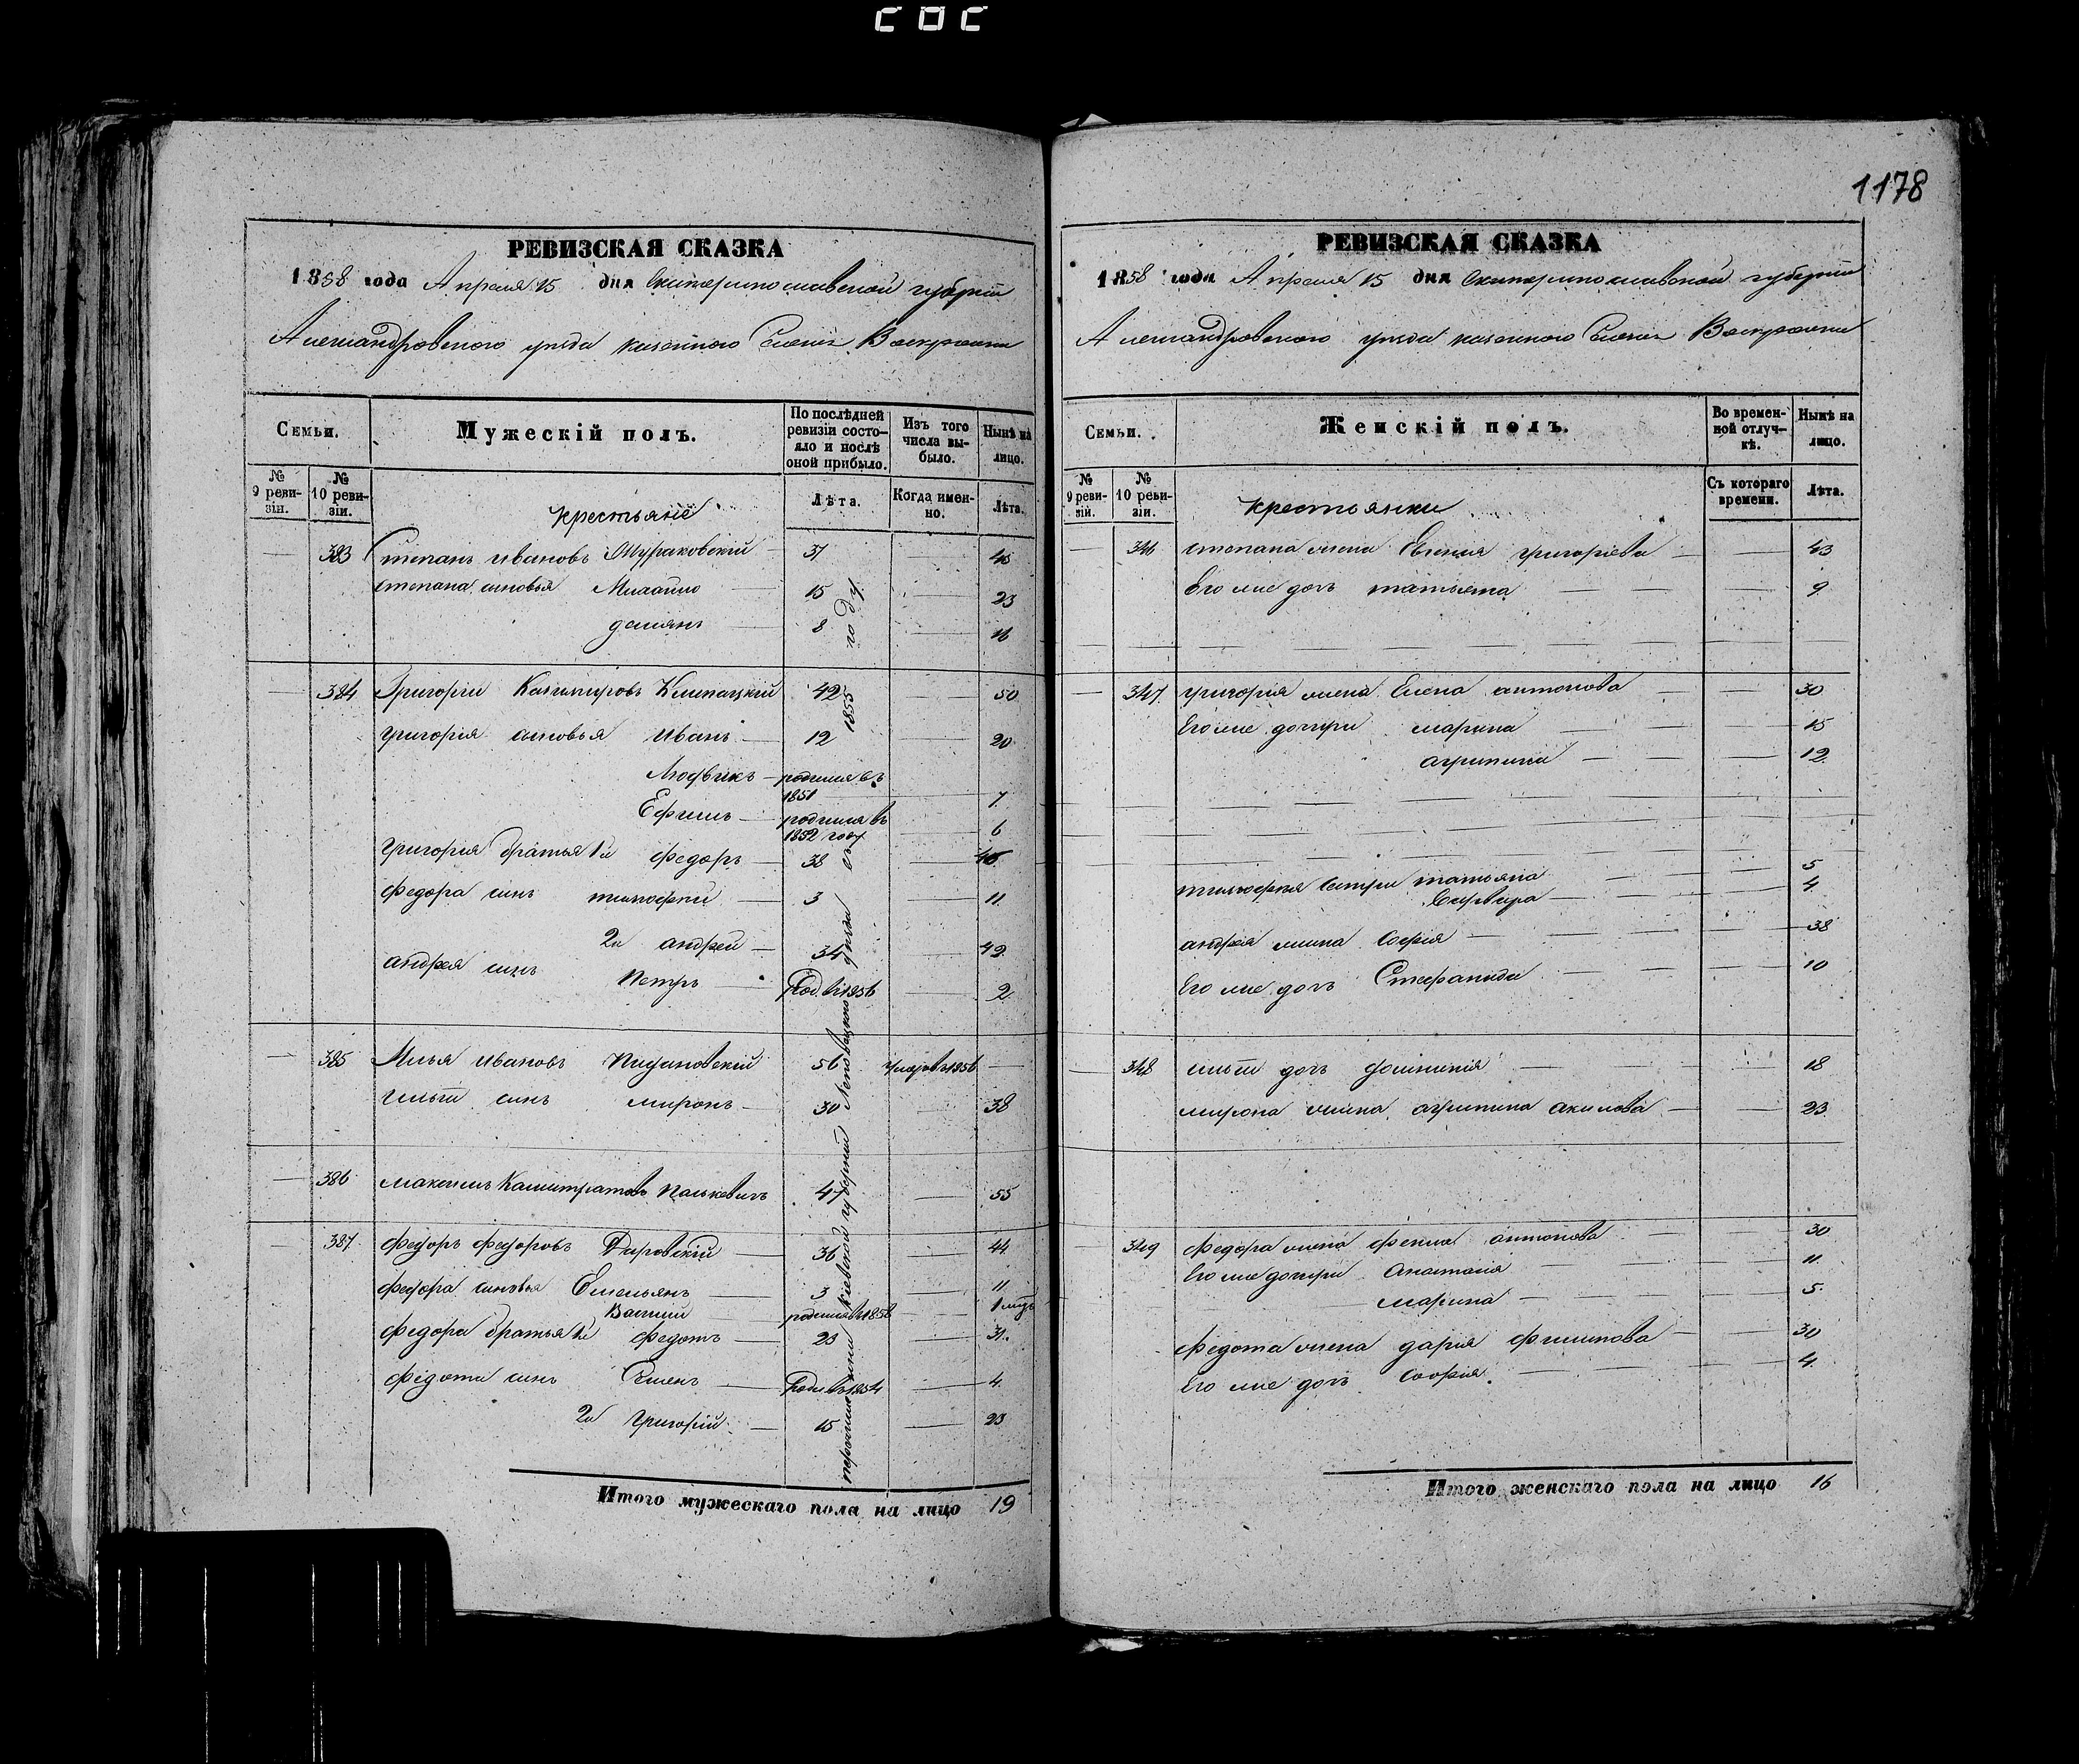 1178
РЕВИЗСКАЯ СКАЗКА
1858 года Апреля 15 дня Екатеринославской губернии
Александровского уезда казенного Селения Воскресенки
Семьи.
Мужескій полъ.
По послѣдней ревизіи состояло и послѣ оной прибыло.
Изъ того числа выбыло.
Нынѣ на лицо.
№ 9 ревизіи.
№ 10 ревизіи.
крестьяне
Лѣта.
Когда именно.
Лѣта.
383 Степанъ Ивановъ 37 45
Степана сыновья 15 23
демянъ 8 16
384 Григорій Казимировъ 42 50
григорія сыновья Иванъ 12 20
Людвикъ родился въ 1851 7
Ефимъ родился въ 1852 году 6
григорія братья 1й федоръ 38 46
федора сынъ тимофей 3 11
2й андрей 34 42
андрея сынъ Петръ Род. въ 1856 2
385 Илья Ивановъ 56 умеръ в 1856
ильи сынъ миронъ 30 38
386 максимъ 47 55
387 федоръ федоровъ 36 44
федора сыновья Емельянъ 3 11
Василий родился в 1858
федора братья 1й федотъ 23 31
федота сынъ Семенъ Родил. въ 1854 4
2й григорій 15 23
Киевской губернии Липовецкого уезда 1855 году
Итого мужескаго пола на лицо 19
РЕВИЗСКАЯ СКАЗКА
1858 года Апреля 15 дня Екатеринославской губернии
Александровского уезда казенного Селения Воскресенки
Семьи.
Женскій полъ.
Во временной отлучкѣ.
Нынѣ на лицо.
№ 9 ревизіи.
№ 10 ревизіи.
крестьянки
Съ котораго времени.
Лѣта.
346 степана жена григорiева 43
Его же дочь татьяна 9
347 григорія жена Елена антонова 30
Его же дочери марина 15
агрипина 12
тимофея сестры татьяна 5
4
андрея жена софия 38
Его же дочь Стефанида 10
348 ильи дочь 18
мирона жена агрипина акимова 23
349 федора жена фекла антонова 30
Его же дочери Анастасия 11
марина 5
федота жена дария филипова 30
Его же дочь софия 4
Итого женскаго пола на лицо 16